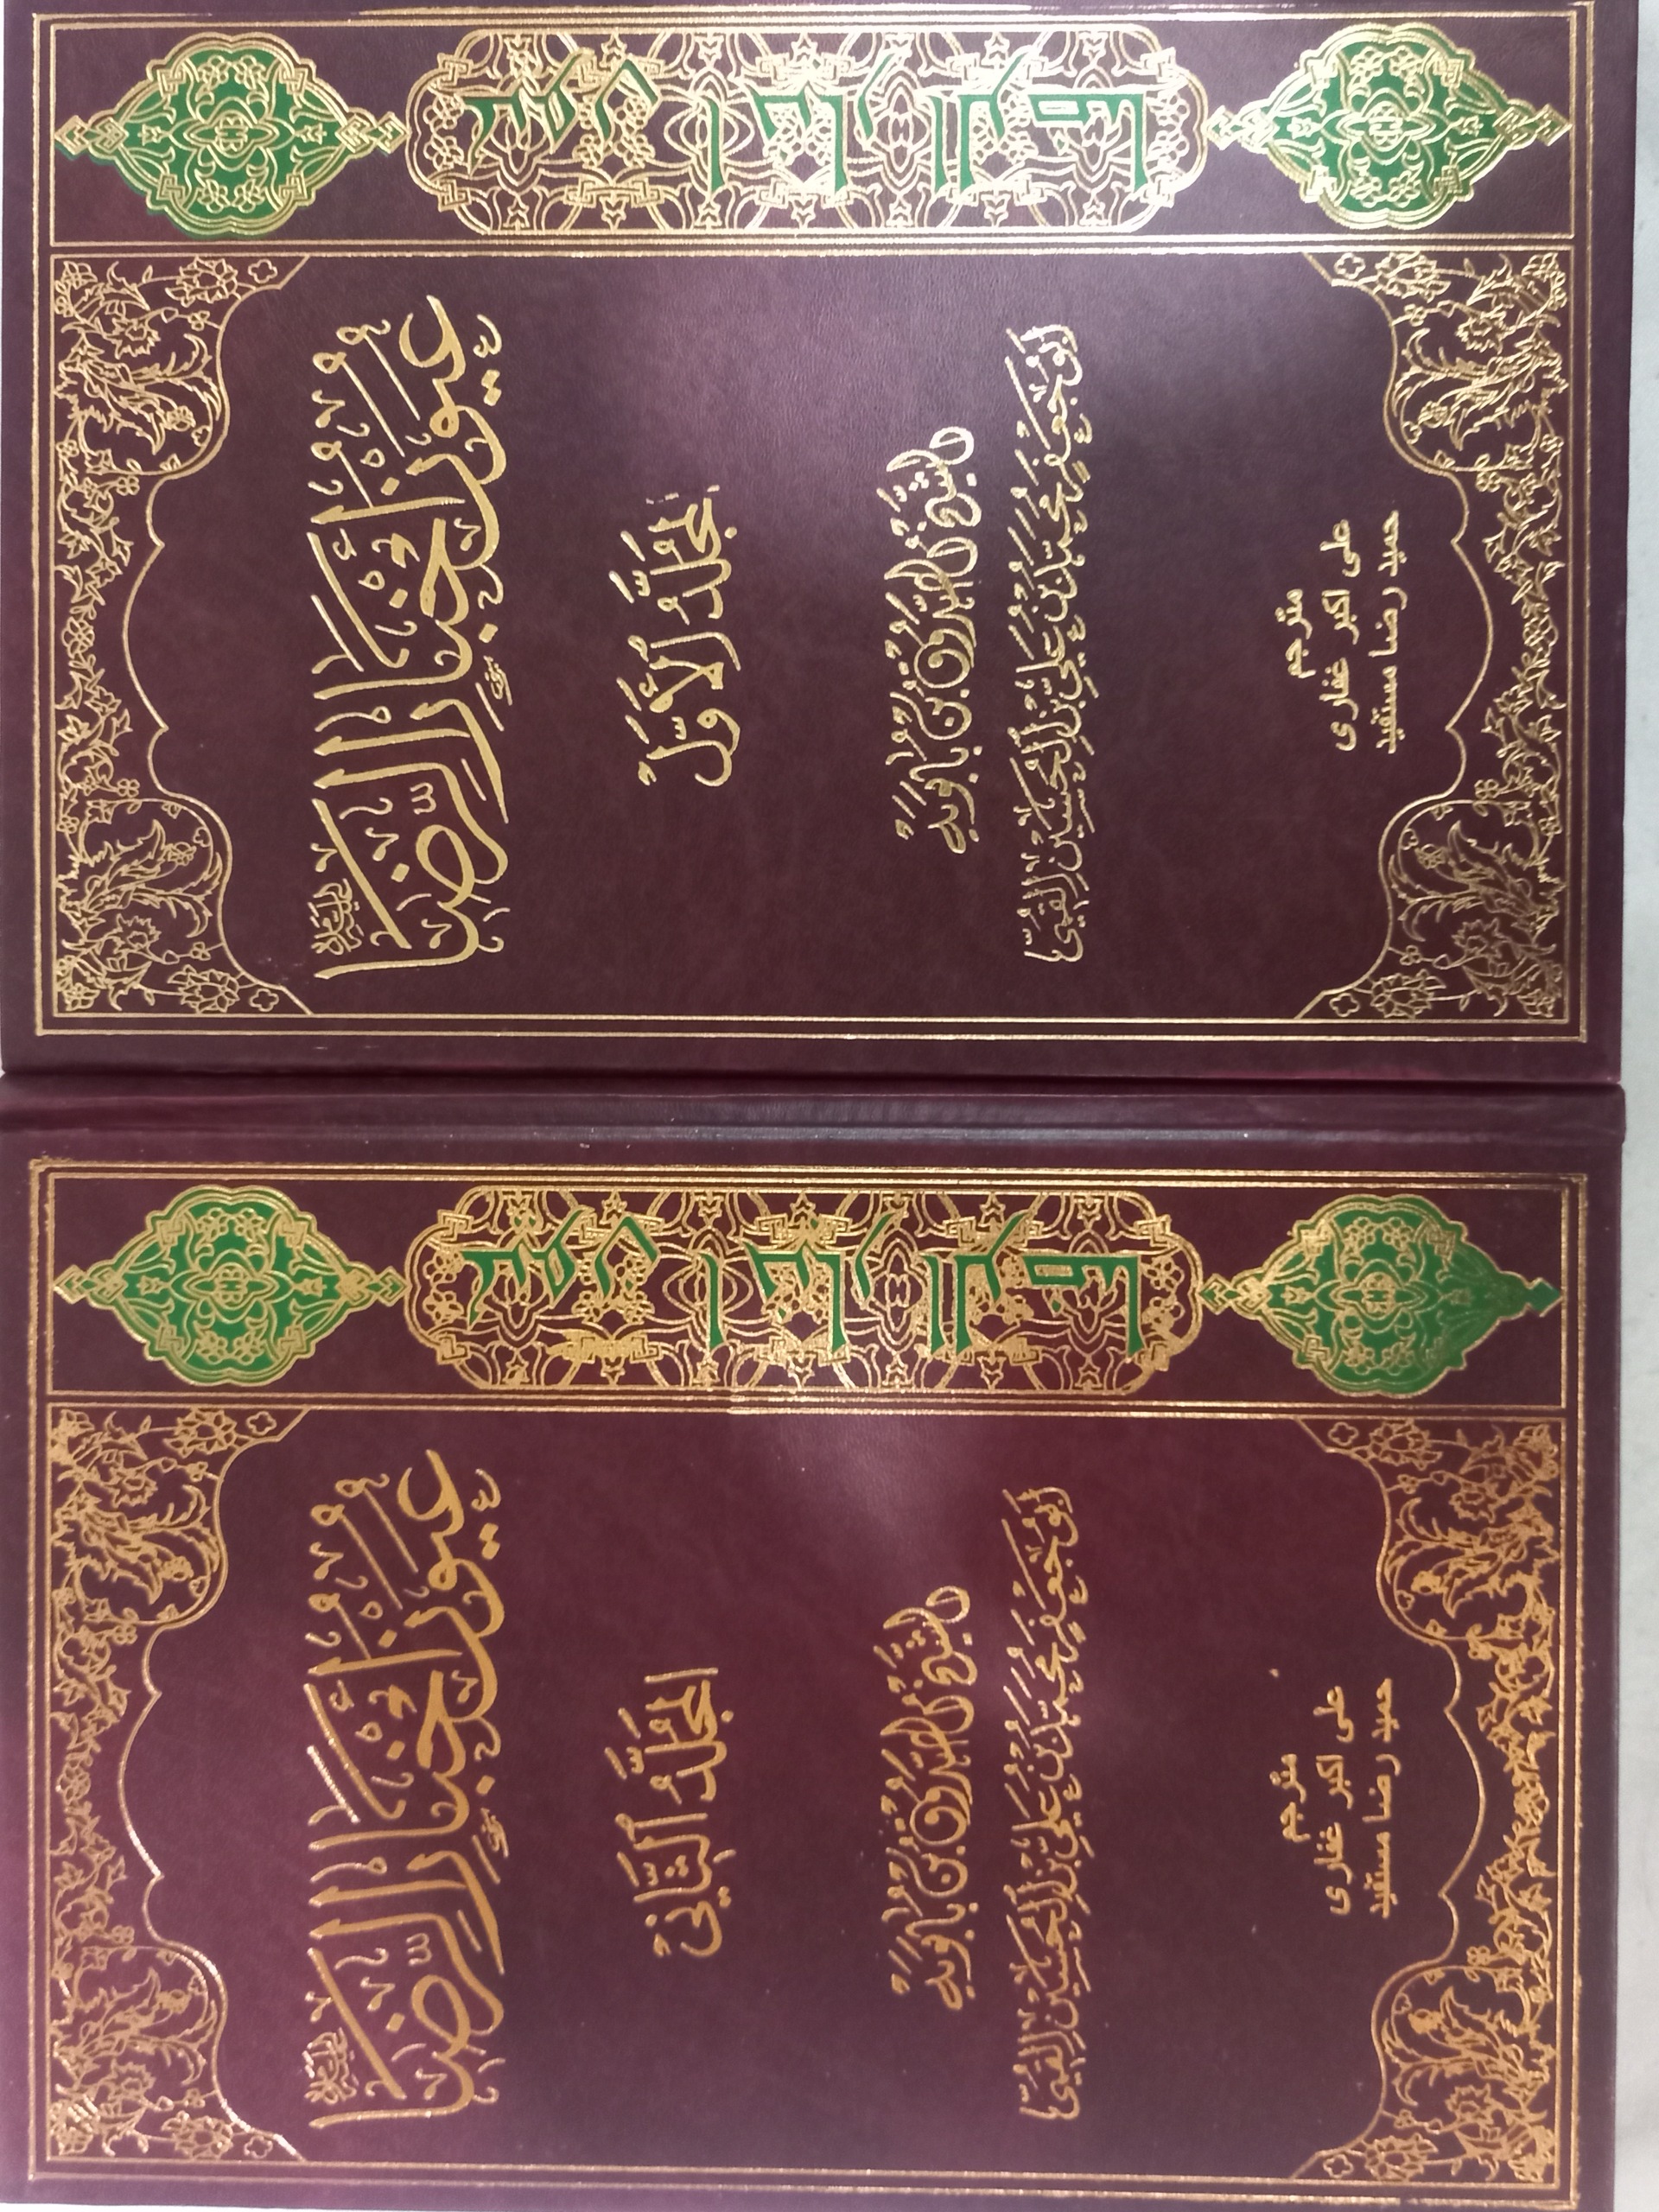 عيون أخبار الرضا
عُيُونُ أَخْبَارِ الرِّضَا
عليه السلام
اَلْمُجَلَّدُ الْأَوَّلُ
لِلشَّيْخِ الصَّدُوقِ ابْنِ بَابَوَيْهِ
أَبُو جَعْفَرٍ مُحَمَّدُ بْنُ عَلِيِّ بْنِ الْحُسَيْنِ الْقُمِّيِّ
مترجم
علی اکبر غفاری
حمید رضا مستفید
عيون أخبار الرضا
عُيُونُ أَخْبَارِ الرِّضَا
عليه السلام
اَلْمُجَلَّدُ الثَّانِي
لِلشَّيْخِ الصَّدُوقِ ابْنِ بَابَوَيْهِ
أَبُو جَعْفَرٍ مُحَمَّدُ بْنُ عَلِيِّ بْنِ الْحُسَيْنِ الْقُمِّيِّ
مترجم
علی اکبر غفاری
حمید رضا مستفید